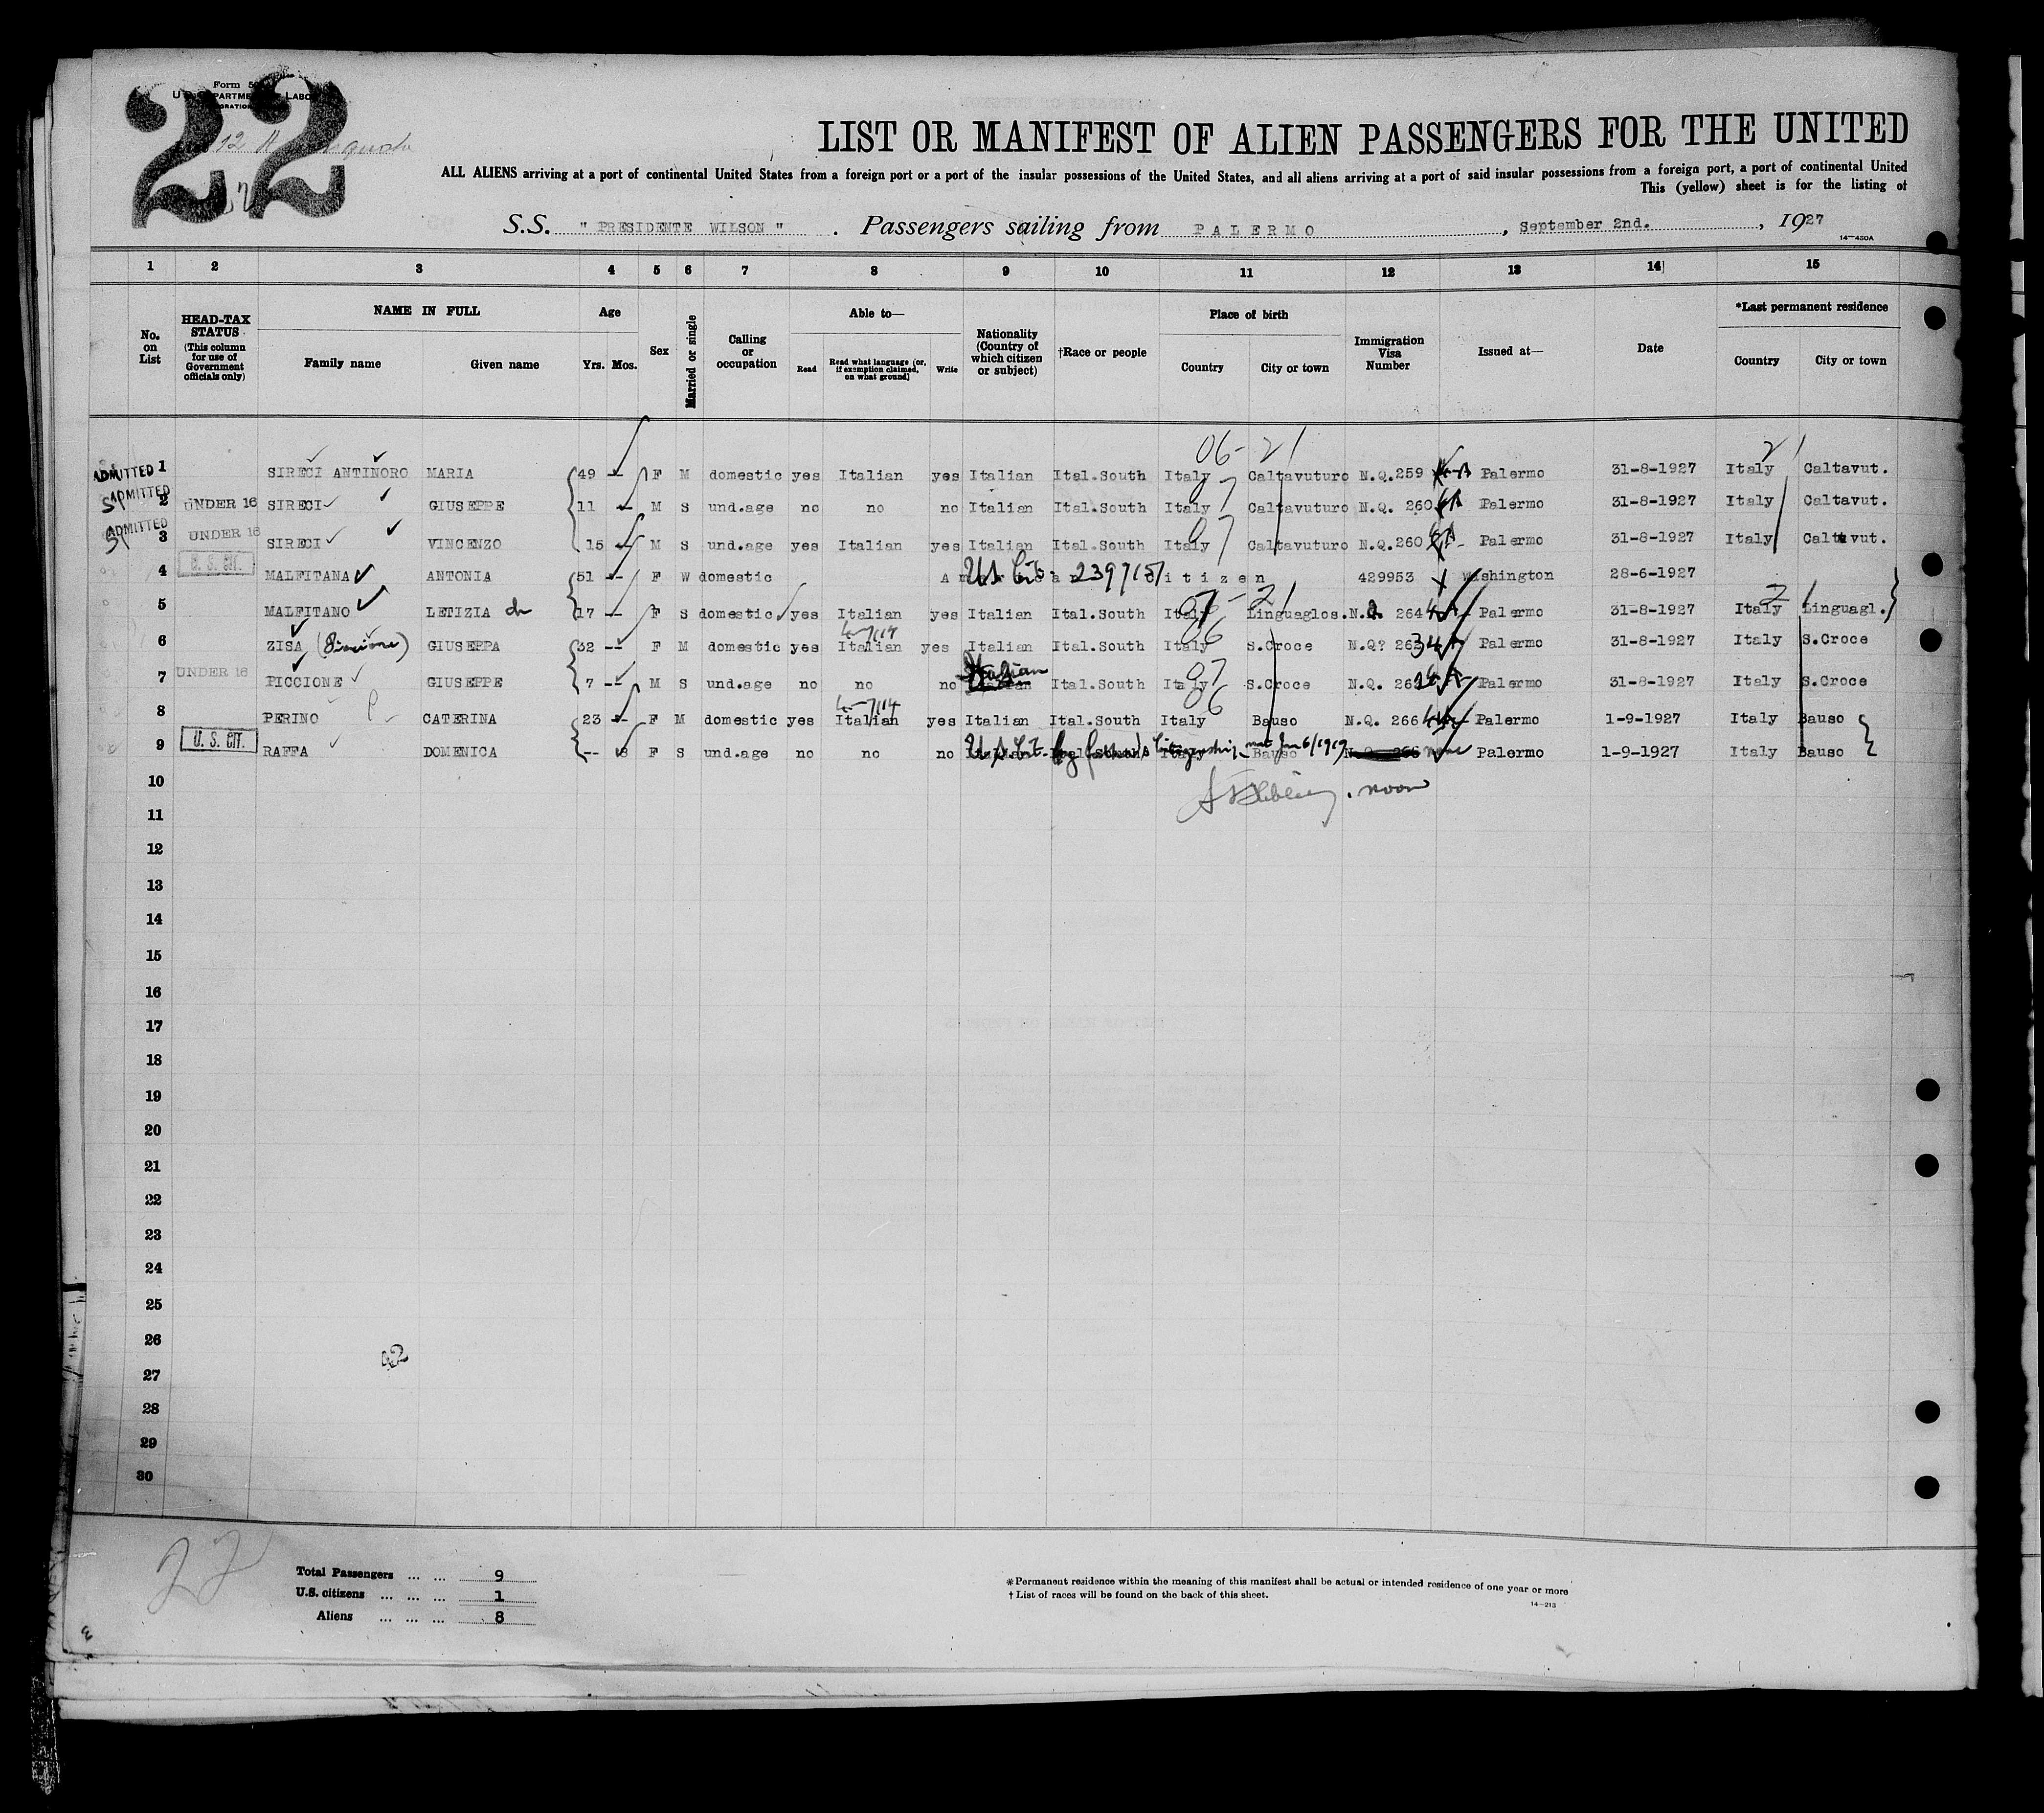 22
Form 5
U. S. DEPARTMENT OF LABOR
LIST OR MANIFEST OF ALIEN PASSENGERS FOR THE UNITED
ALL ALIENS arriving at a port of continental United States from a foreign port or a port of the insular possessions of the United States, and all aliens arriving at a port of said insular possessions from a foreign port, a port of continental United
This (yellow) sheet is for the listing of
S.S. " PRESIDENTE WILSON " . Passengers sailing from PALERMO , September 2nd. , 1927
14—430A
1 2 3 4 5 6 7 8 9 10 11 12 13 14 15
No. on List
HEAD-TAX STATUS (This column for use of Government officials only)
NAME IN FULL
Family name Given name
Age
Yrs. Mos.
Sex
Married or single
Calling or occupation
Able to—
Read Read what language (or, if exemption claimed, on what ground) Write
Nationality (Country of which citizen or subject)
†Race or people
Place of birth
Country City or town
Immigration Visa Number
Issued at—
Date
*Last permanent residence
Country City or town
06-21 21
ADMITTED 1 SIRECI ANTINORO MARIA 49 -- F M domestic yes Italian yes Italian Ital.South Italy Caltavuturo N.Q.259 Palermo 31-8-1927 Italy Caltavut.
ADMITTED 2 UNDER 16 SIRECI GIUSEPPE 11 -- M S und.age no no no Italian Ital.South Italy 07 Caltavuturo N.Q. 260 Palermo 31-8-1927 Italy Caltavut.
ADMITTED 3 UNDER 16 SIRECI VINCENZO 15 -- M S und.age yes Italian yes Italian Ital.South Italy 07 Caltavuturo N.Q.260 Palermo 31-8-1927 Italy Caltavut.
4 U. S. CIT. MALFITANA ANTONIA 51 -- F W domestic American Citizen US Cit. 429953 Washington 28-6-1927
5 MALFITANO LETIZIA 17 -- F S domestic yes Italian yes Italian Ital.South Italy 07-21 Linguaglos. N.Q. 264 Palermo 31-8-1927 Italy Linguagl.
6 ZISA GIUSEPPA 32 -- F M domestic yes Italian yes Italian Ital.South Italy 06 S.Croce N.Q? 263 Palermo 31-8-1927 Italy S.Croce
7 UNDER 16 PICCIONE GIUSEPPE 7 -- M S und.age no no no Italian Ital.South Italy 07 S.Croce N.Q. 26 Palermo 31-8-1927 Italy S.Croce
8 PERINO CATERINA 23 -- F M domestic yes Italian yes Italian Ital.South Italy 06 Bauso N.Q. 266 Palermo 1-9-1927 Italy Bauso
9 U. S. CIT. RAFFA DOMENICA -- 8 F S und.age no no no U.S. Cit. by father's Citizenship Bauso none Palermo 1-9-1927 Italy Bauso
10
11
12
13
14
15
16
17
18
19
20
21
22
23
24
25
26
42
27
28
29
30
22
Total Passengers ... ... 9
U.S. citizens ... ... ... 1
Aliens ... ... ... 8
* Permanent residence within the meaning of this manifest shall be actual or intended residence of one year or more
† List of races will be found on the back of this sheet.
14—213